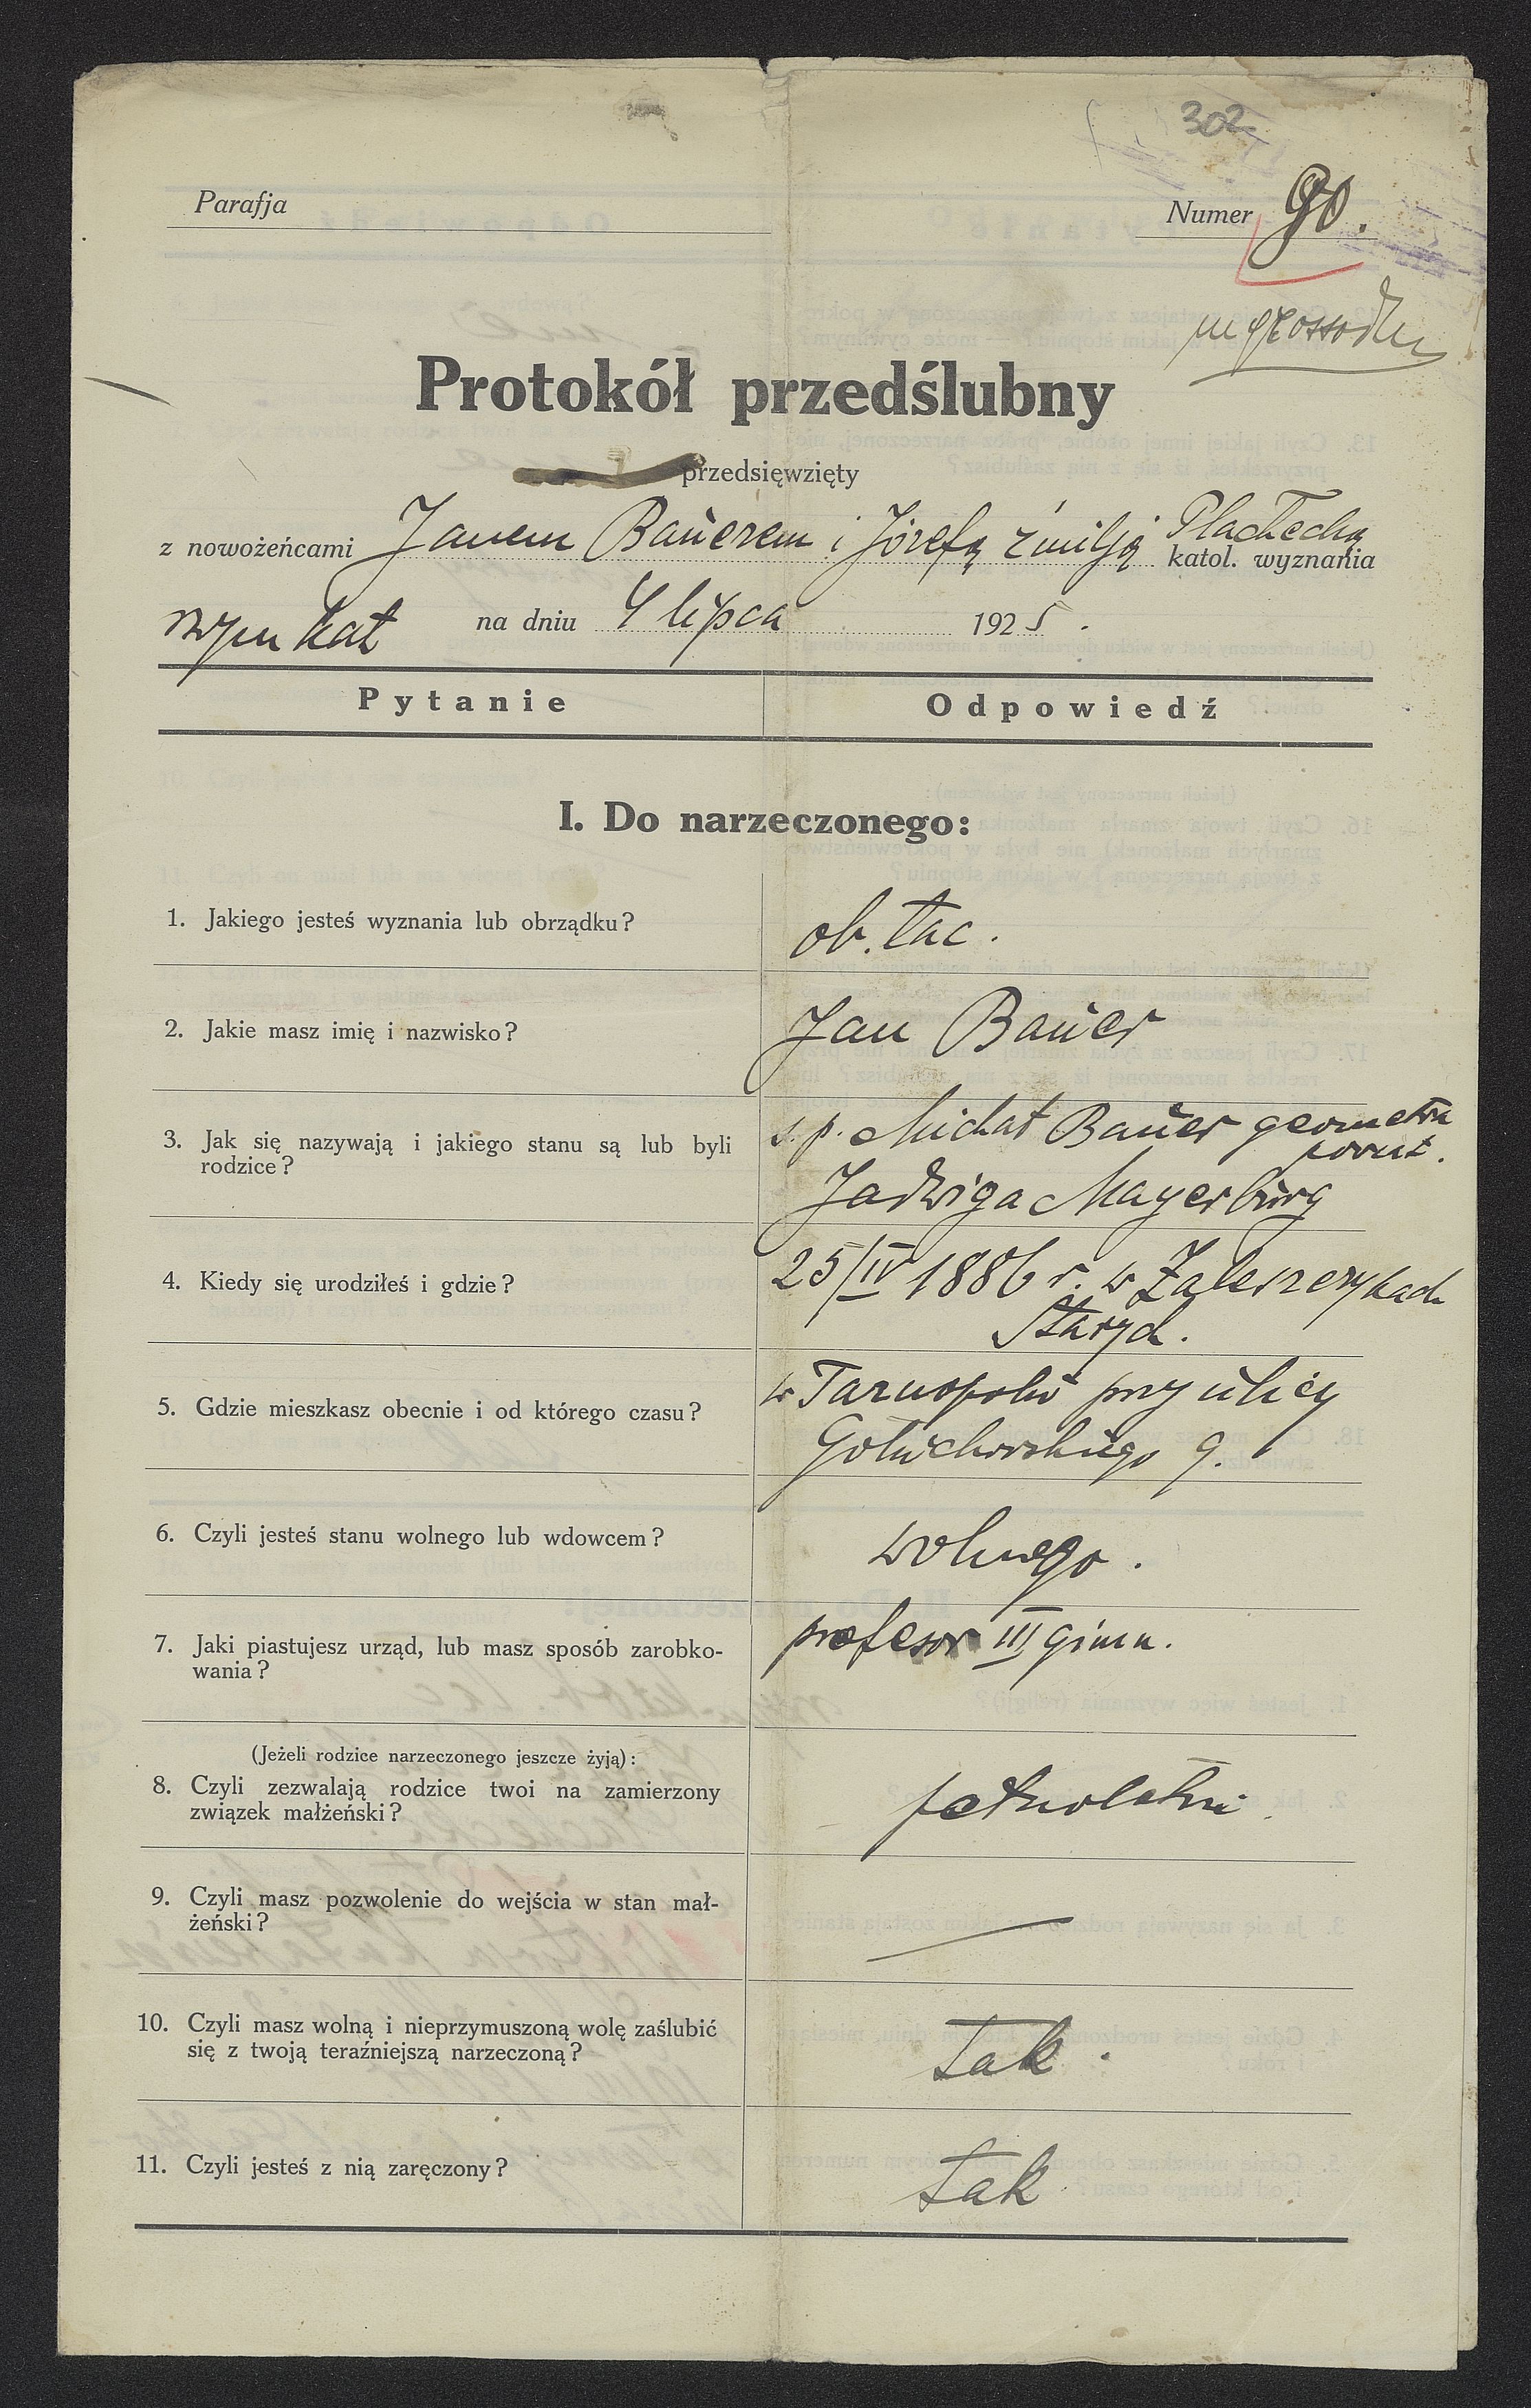 302
Parafja
Numer 90.
Protokół przedślubny
przedsięwzięty
z nowożeńcami Janem Bauerem i Józefą Emilją Płachecką
katol. wyznania
rzym kat na dniu 4 lipca 1925.
Pytanie Odpowiedź
I. Do narzeczonego:
1. Jakiego jesteś wyznania lub obrządku?
ob. łac.
2. Jakie masz imię i nazwisko?
Jan Bauer
3. Jak się nazywają i jakiego stanu są lub byli
rodzice?
s. p. Michał Bauer geometra
Jadwiga Mayerburg
4. Kiedy się urodziłeś i gdzie?
25/IV 1886 r. w Zaleszczykach
Starych.
5. Gdzie mieszkasz obecnie i od którego czasu?
w Tarnopolu przy ulicy
Gołuchowskiego 9.
6. Czyli jesteś stanu wolnego lub wdowcem?
wolnego.
7. Jaki piastujesz urząd, lub masz sposób zarobko-
wania?
profesor III gimn.
(Jeżeli rodzice narzeczonego jeszcze żyją):
8. Czyli zezwalają rodzice twoi na zamierzony
związek małżeński?
pełnoletni.
9. Czyli masz pozwolenie do wejścia w stan mał-
żeński?
—
10. Czyli masz wolną i nieprzymuszoną wolę zaślubić
się z twoją teraźniejszą narzeczoną?
tak.
11. Czyli jesteś z nią zaręczony?
tak